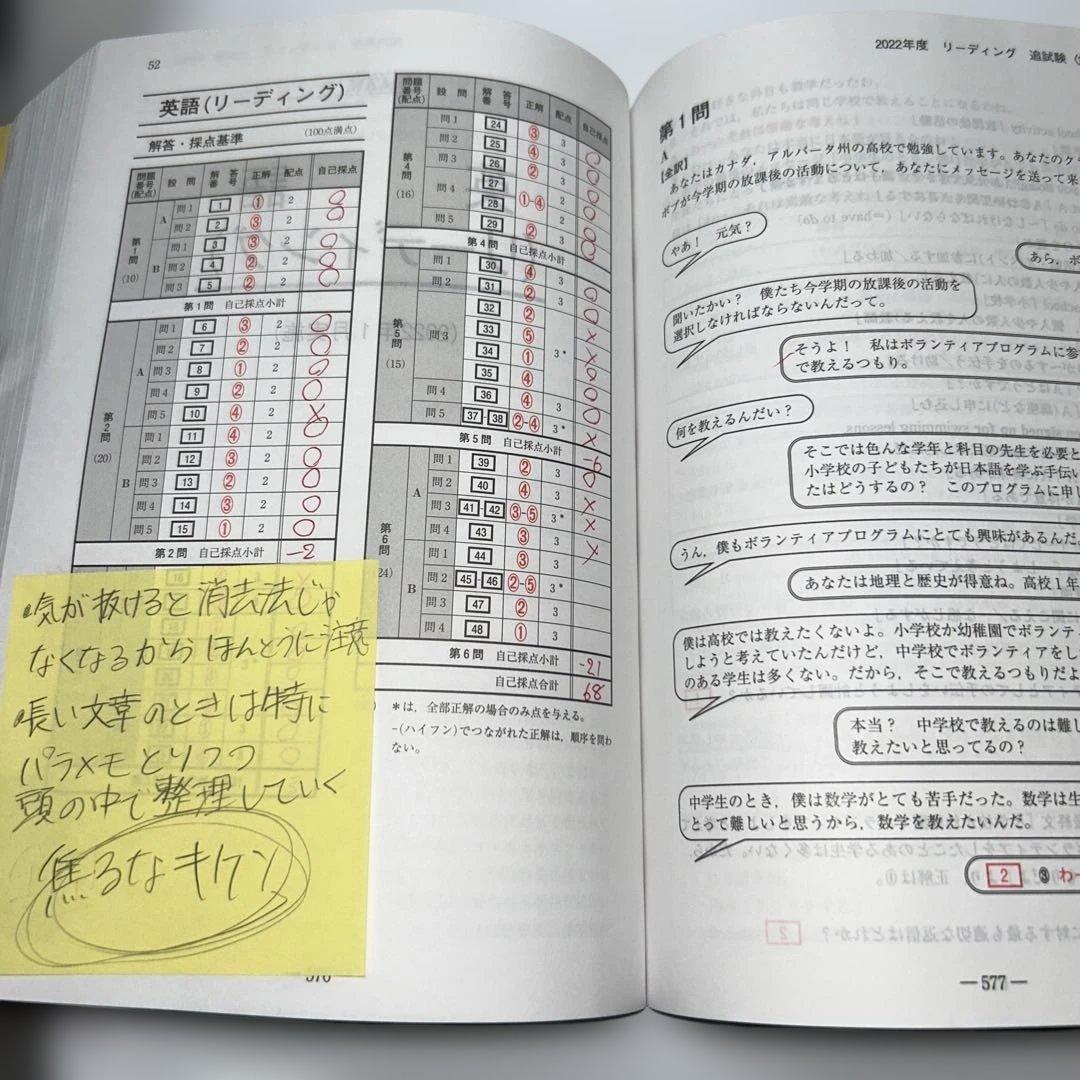 52
英語(リーディング)
解答・採点基準 (100点満点)
問題番号(配点) 設問 解答番号 正解 配点 自己採点
第1問 (10)
A 問1 1 ① 2
問2 2 ③ 2
B 問1 3 ③ 2
問2 4 ② 2
問3 5 ② 2
第1問 自己採点小計
第2問 (20)
A 問1 6 ③ 2
問2 7 ② 2
問3 8 ① 2
問4 9 ② 2
問5 10 ④ 2
B 問1 11 ④ 2
問2 12 ③ 2
問3 13 ② 2
問4 14 ③ 2
問5 15 ① 2
第2問 自己採点小計 -2
問題番号(配点) 設問 解答番号 正解 配点 自己採点
第4問 (16)
問1 24 ③ 3
問2 25 ④ 3
問3 26 ② 3
問4 27
28 ①-④ 3
問5 29 ② 3
第4問 自己採点小計
第5問 (15)
問1 30 ④ 3
問2 31 ② 3
問3 32 ②
33 ⑤
34 ① 3*
35 ④
問4 36 ④ 3
問5 37-38 ②-④ 3*
第5問 自己採点小計 -9
第6問 (24)
A 問1 39 ② 3
問2 40 ④ 3
問3 41-42 ③-⑤ 3*
問4 43 ③ 3
B 問1 44 ③ 3
問2 45-46 ②-⑤ 3*
問3 47 ② 3
問4 48 ① 3
第6問 自己採点小計 -21
自己採点合計 68
*は,全部正解の場合のみ点を与える。
-(ハイフン)でつながれた正解は,順序を問わ
ない。
気が抜けると消去法じゃ
なくなるからほんとうに注意
長い文章のときは特に
パラメモとりつつ
頭の中で整理していく
焦るなキケン
2022年度 リーディング 追試験
第1問
A
【全訳】
あなたはカナダ,アルバータ州の高校で勉強しています。あなたのク
ボブが今学期の放課後の活動について,あなたにメッセージを送って来
やあ! 元気?
あら,ボ
聞いたかい? 僕たち今学期の放課後の活動を
選択しなければならないんだって。
そうよ! 私はボランティアプログラムに参
で教えるつもり。
何を教えるんだい?
そこでは色んな学年と科目の先生を必要と
小学校の子どもたちが日本語を学ぶ手伝い
たはどうするの? このプログラムに申し
うん,僕もボランティアプログラムにとても興味があるんだ。
あなたは地理と歴史が得意ね。高校1年
僕は高校では教えたくないよ。小学校か幼稚園でボランテ
しようと考えていたんだけど,中学校でボランティアをし
のある学生は多くない。だから,そこで教えるつもりだよ
本当? 中学校で教えるのは難し
教えたいと思ってるの?
中学生のとき,僕は数学がとても苦手だった。数学は生
とって難しいと思うから,数学を教えたいんだ。
2 ③ わー
—577—